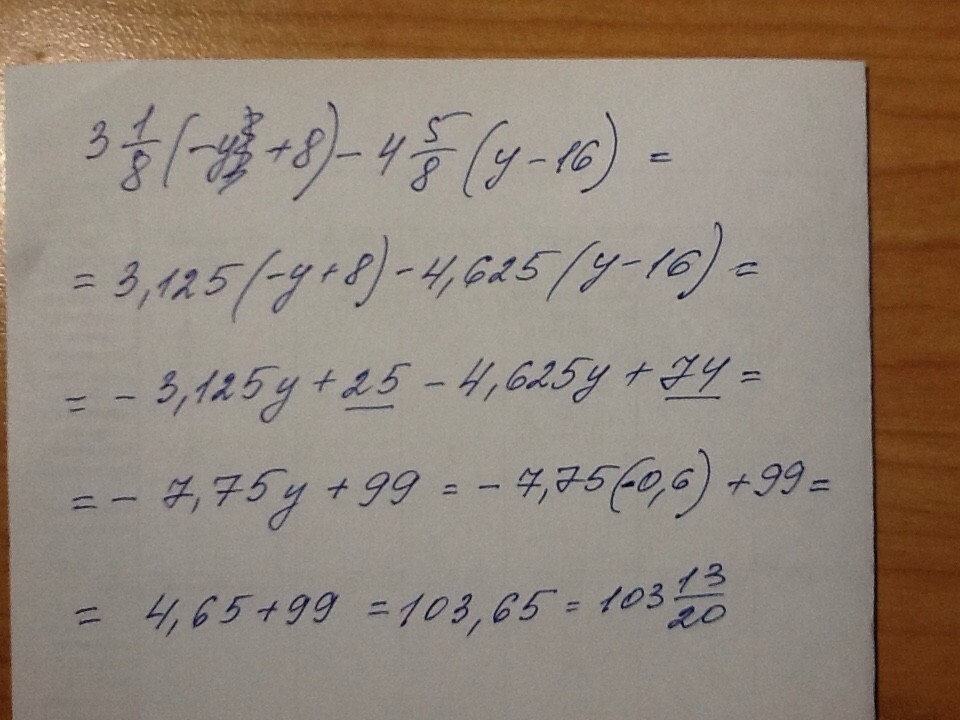 3 1/8 (-y +8) - 4 5/8 (y - 16) =
= 3,125(-y+8) - 4,625(y-16) =
= - 3,125y + 25 - 4,625y + 74 =
= - 7,75y + 99 = - 7,75(-0,6) + 99 =
= 4,65 + 99 = 103,65 = 103 13/20